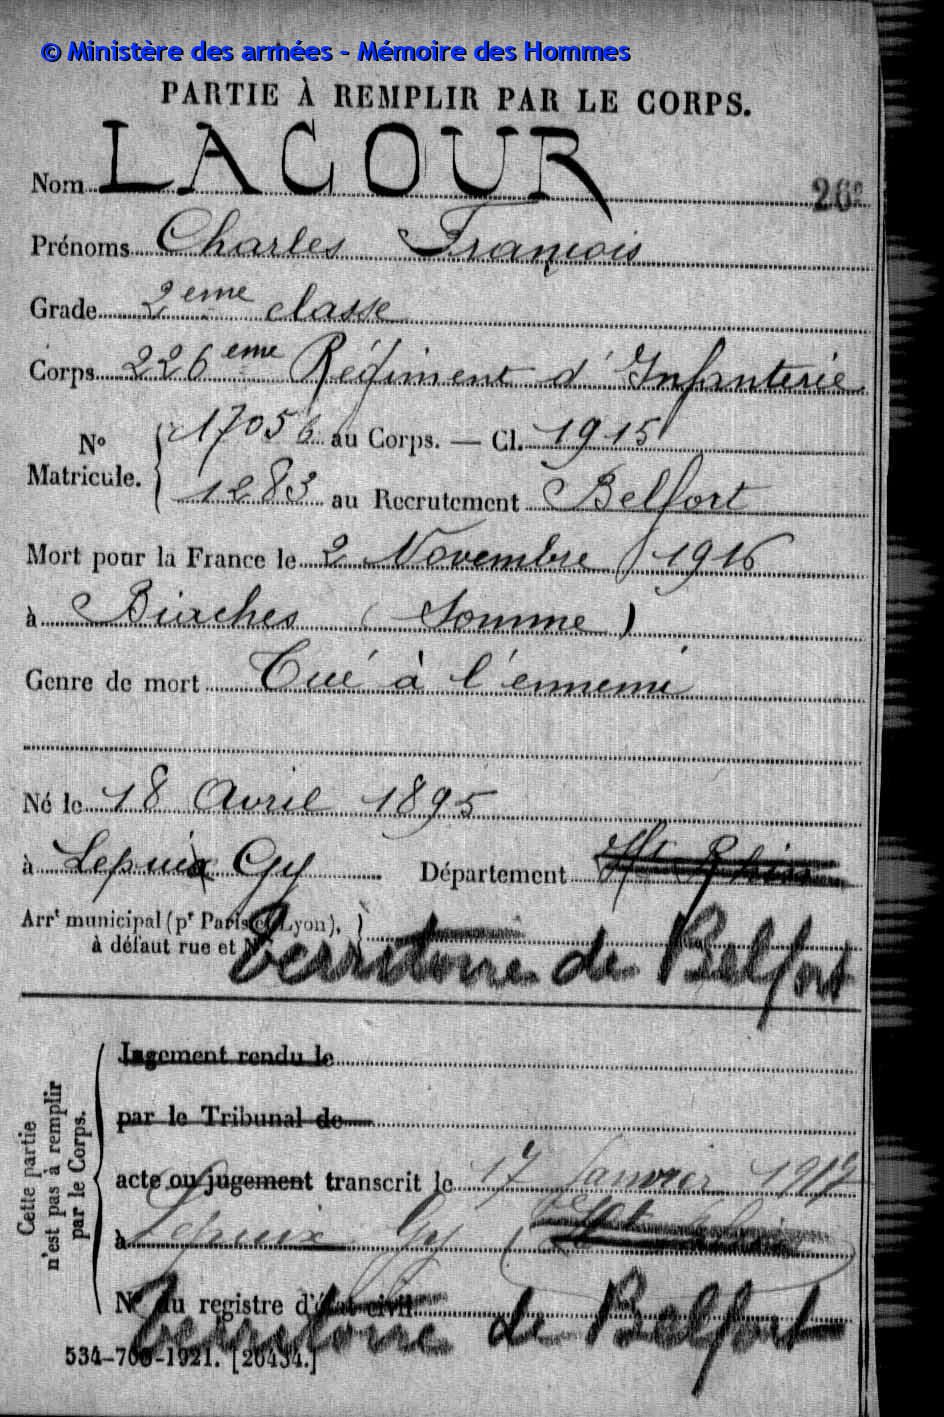 © Ministère des armées - Mémoire des Hommes
PARTIE À REMPLIR PAR LE CORPS.
Nom LACOUR
26e
Prénoms Charles François
Grade 2eme classe
Corps 226eme Régiment d'Infanterie
N° Matricule. 17056 au Corps. — Cl. 1915
1283 au Recrutement Belfort
Mort pour la France le 2 Novembre 1916
à Biaches (Somme)
Genre de mort Tué à l'ennemi
Né le 18 Avril 1895
à Lepuix Gy Département Ht Rhin
Arrt municipal (pr Paris et Lyon),
à défaut rue et N°
Territoire de Belfort
Cette partie
n'est pas à remplir
par le Corps.
Jugement rendu le
par le Tribunal de
acte ou jugement transcrit le 17 Janvier 1917
à Lepuix Gy (Ht Rhin)
N° du registre d'état civil
Territoire de Belfort
534-708-1921. [26434.]